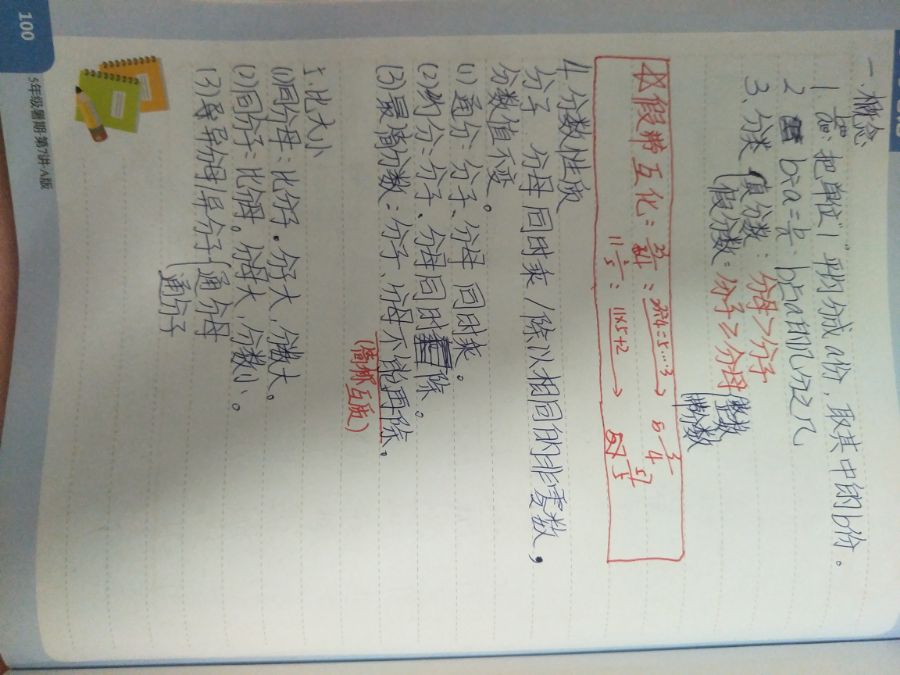 一、概念
1. 把单位"1"平均分成a份,取其中的b份。
2. b÷a=b/a b是a的几分之几
3、分类 真分数:分母>分子
假分数:分子≥分母 整数
带分数
假带互化: 23/4 : 23÷4=5…3 → 5 3/4
11 2/5 : 11×5+2 → 57/5
4.分数性质
分子 分母同时乘/除以相同的非零数,
分数值不变。
(1)通分 分子、分母 同时乘。
(2)约分:分子、分母同时除。
(3)最简分数:分子、分母不能再除。
(简称互质)
5、比大小
(1)同分母:比分子.分子大,分数大。
(2)同分子:比分母。分母大,分数小。
(3)异分母异分子 通分母
通分子
100
5年级暑期·第7讲·A版